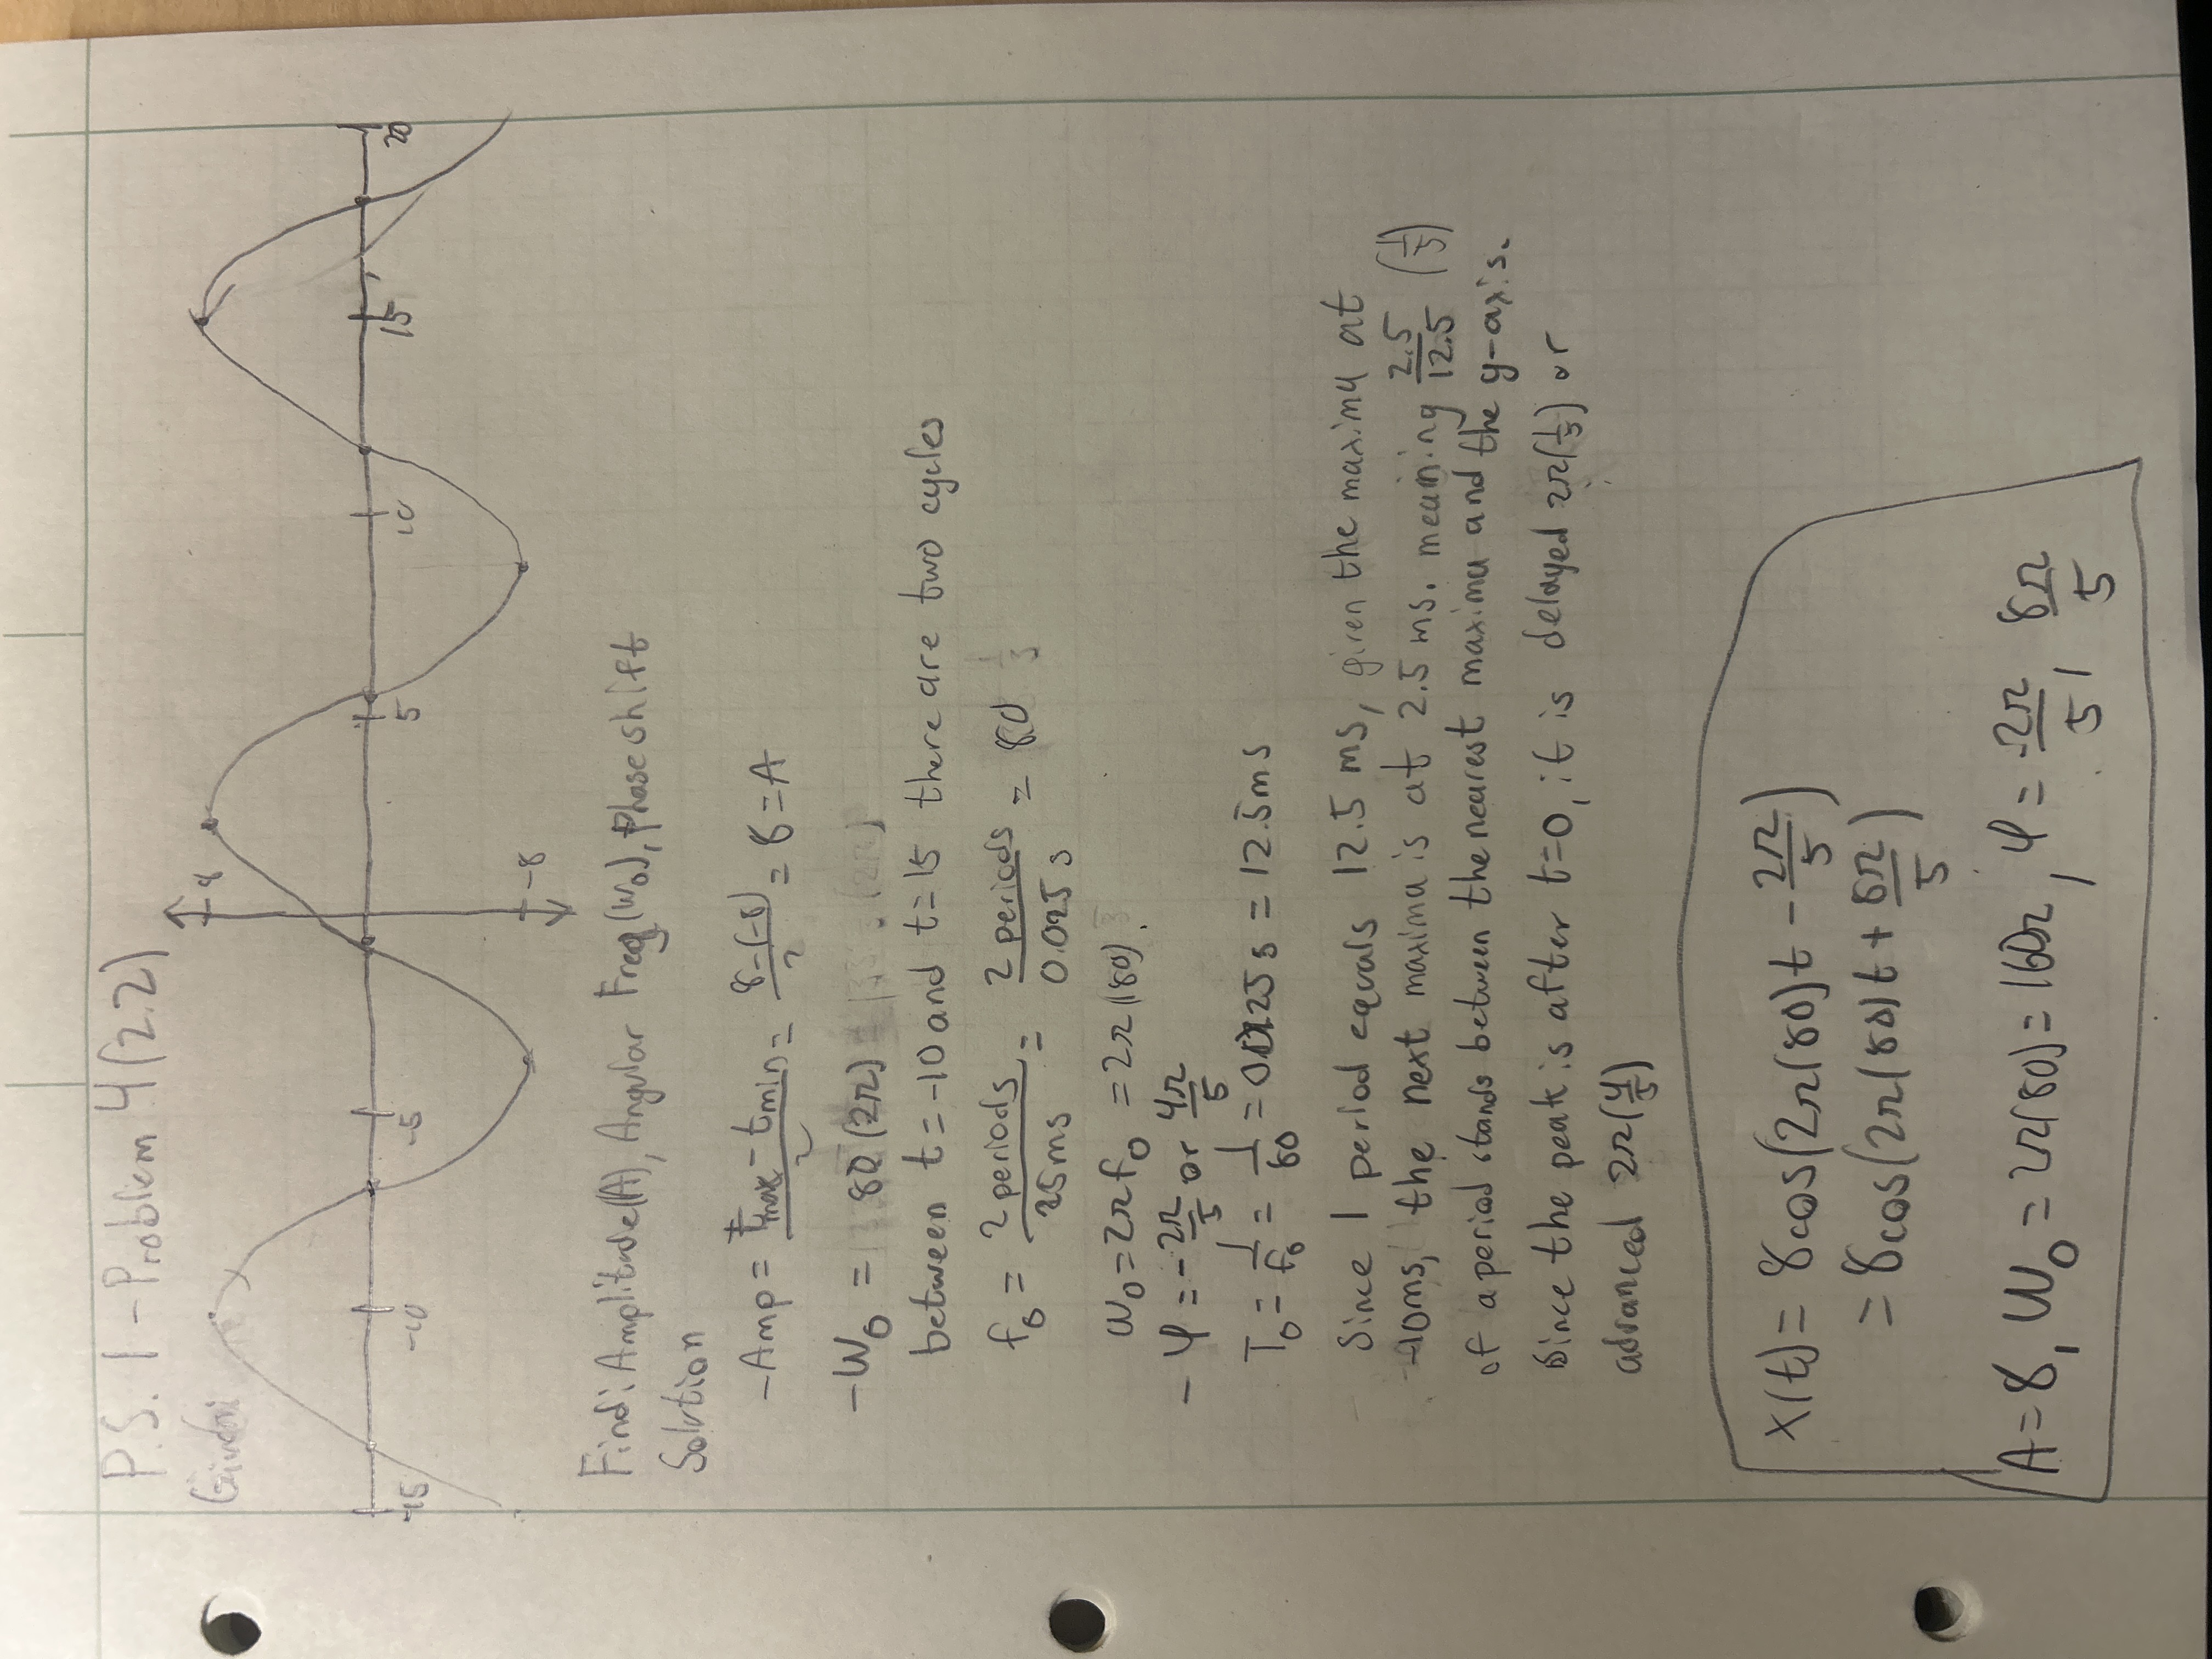 P.S. 1 - Problem 4(2.2)
Given:
8
-15 -10 -5 5 10 15 20
-8
Find: Amplitude(A), Angular Freq(W₀), Phase shift
Solution
-Amp = (tmax - tmin)/2 = (8-(-8))/2 = 8 = A
-W₀ = 80(2π)
between t=-10 and t=15 there are two cycles
f₀ = 2 periods/25ms = 2 periods/0.025 s = 80
W₀=2πf₀ = 2π(80)
- φ = -2π/5 or 4π/5
T₀ = 1/f₀ = 1/80 = 0.0125 s = 12.5ms
Since 1 period equals 12.5 ms, given the maxima at
-10ms, the next maxima is at 2.5 ms. meaning 2.5/12.5 (1/5)
of a period stands between the nearest maxima and the y-axis.
Since the peak is after t=0, it is delayed 2π(1/5) or
advanced 2π(4/5)
x(t) = 8cos(2π(80)t - 2π/5)
= 8cos(2π(80)t + 8π/5)
A=8, W₀ = 2π(80) = 160π, φ = -2π/5, 8π/5